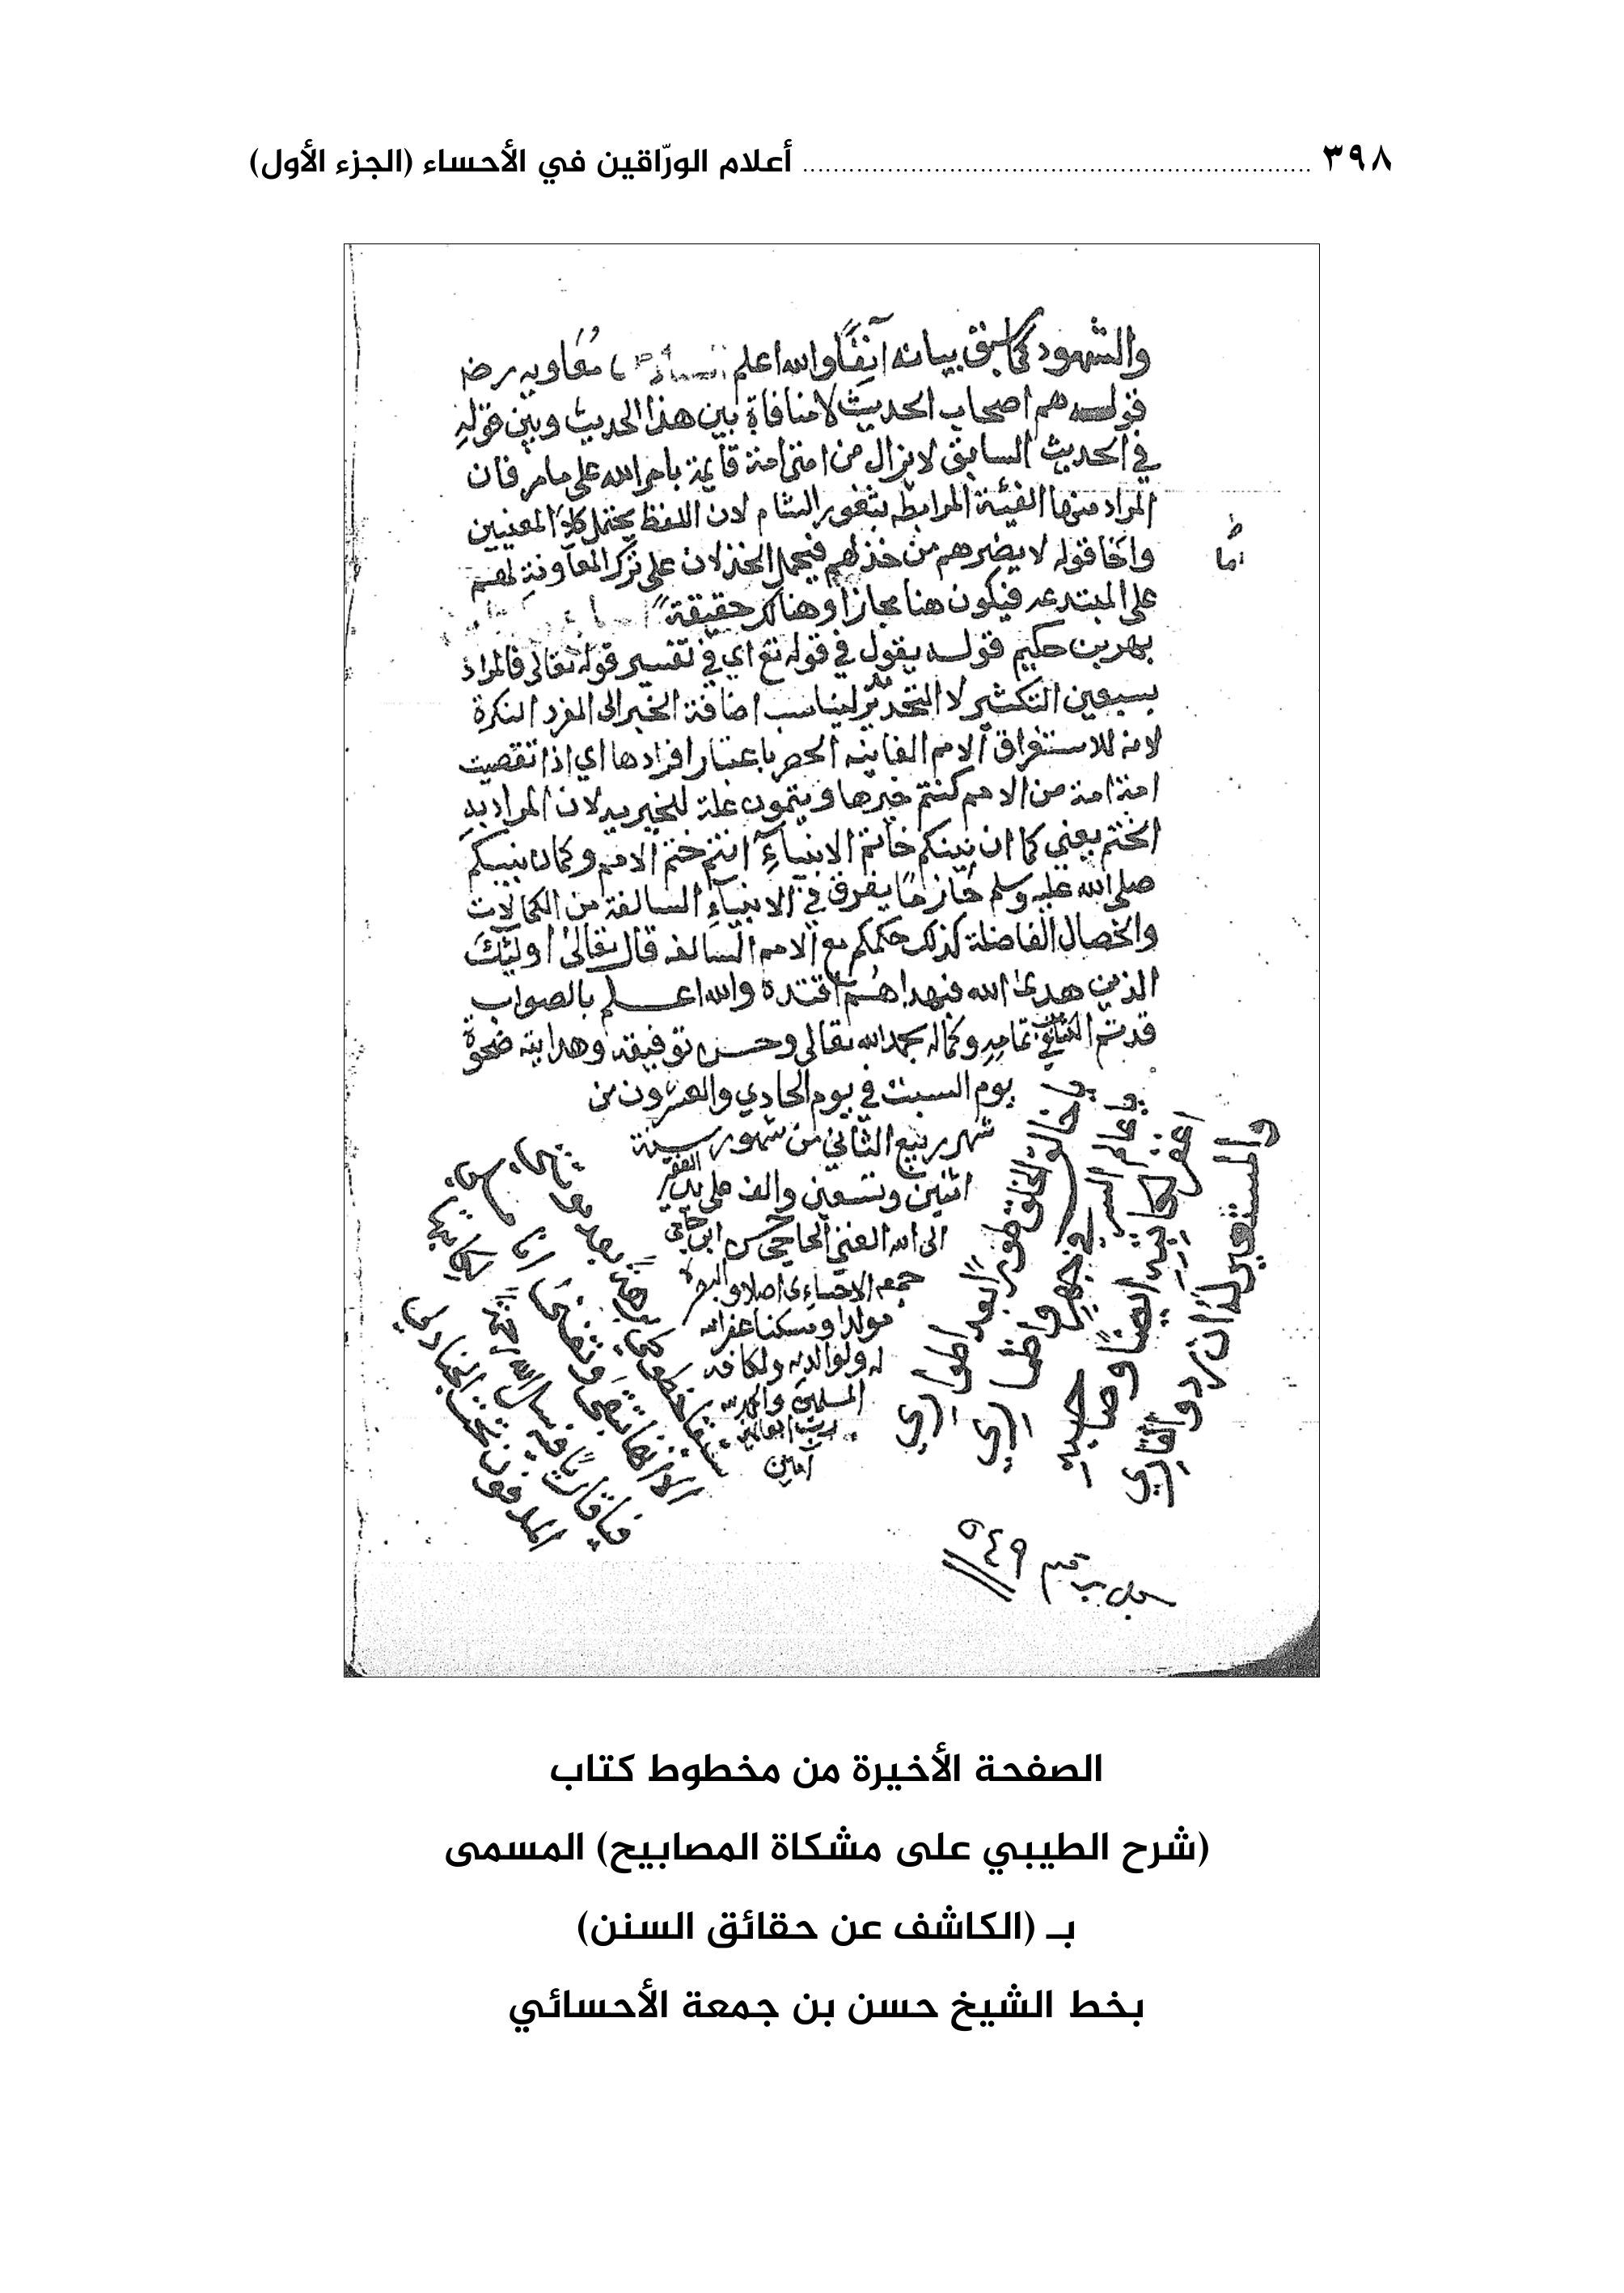 ٣٩٨ ........ أعلام الورّاقين في الأحساء (الجزء الأول)
والشهود كما سبق بيانه آنفًا والله اعلم معاويه رض
قولـه هم اصحاب الحديث لا منافاة بين هذا الحديث وبين قوله
في الحديث السابق لا يزال من امتي امة قايمة بامر الله على ما مر فان
المراد منها الفئية المرابطه بثغور الشام لان اللفظ يحتمل كلا المعنيين
واما قوله لا يضرهم من خذلهم فيحمل الخذلان على ترك المعاونة لهم
اما
على المبتدعه فيكون هنا مجازا وهناك حقيقة
بهر بن حكيم قولـه يقول في قوله تع اي في تفسير قوله تعالى فالمراد
بسبعين التكثير لا التحديد ليناسب اضافة الخير الى المفرد النكرة
لانه للاستغراق الامم الفايته الحصر باعتبار افرادها اي اذا تقصيت
امة امة من الامم كنتم خيرها ويتمون علة للخيريه لان المراد به
الختم يعني كما ان نبيكم خاتم الانبياء انتم ختم الامم وكما ان نبيكم
صلى الله عليه وسلم حاز ما يفرق في الانبياء السالفة من الكمالات
والخصال الفاضلة كذلك حكمكم مع الامم السالفه قال تعالى اوليئك
الذين هدى الله فبهداهم اقتده والله اعلم بالصواب
قد تم الكتاب بتمامه وكماله بحمد الله تعالى وحسن توفيقه وهدايته ضحوة
يوم السبت في يوم الحادي والعشرون من
شهر ربيع الثاني من شهور سنة
اثنين وتسعين والف على يد الفقير
الى الله الغني الحاجي حسن ابن حاجي
جمعه الاحساءي اصلا والبصره
مولدا ومسكنا غفر الله
له ولوالديه ولكافه
المسلمين والحمد لله
رب العالمين
آمين
يا خالق الخلق طورًا بعد اطواري
ويا عالم السر في جهر واضماري
اغفر لكاتبه ايضًا وصاحبه
والمستعير له ان رد والقاري
ستبقا خطوطي برهةً بعد موتتي
الا انها تبقى وتفنى انا ملي
فيا قارئًا فيه سال الله رحمةً لكاتبه
المدفون تحت الجنادلي
سجل برقم ٥٤٩
الصفحة الأخيرة من مخطوط كتاب
(شرح الطيبي على مشكاة المصابيح) المسمى
بـ (الكاشف عن حقائق السنن)
بخط الشيخ حسن بن جمعة الأحسائي